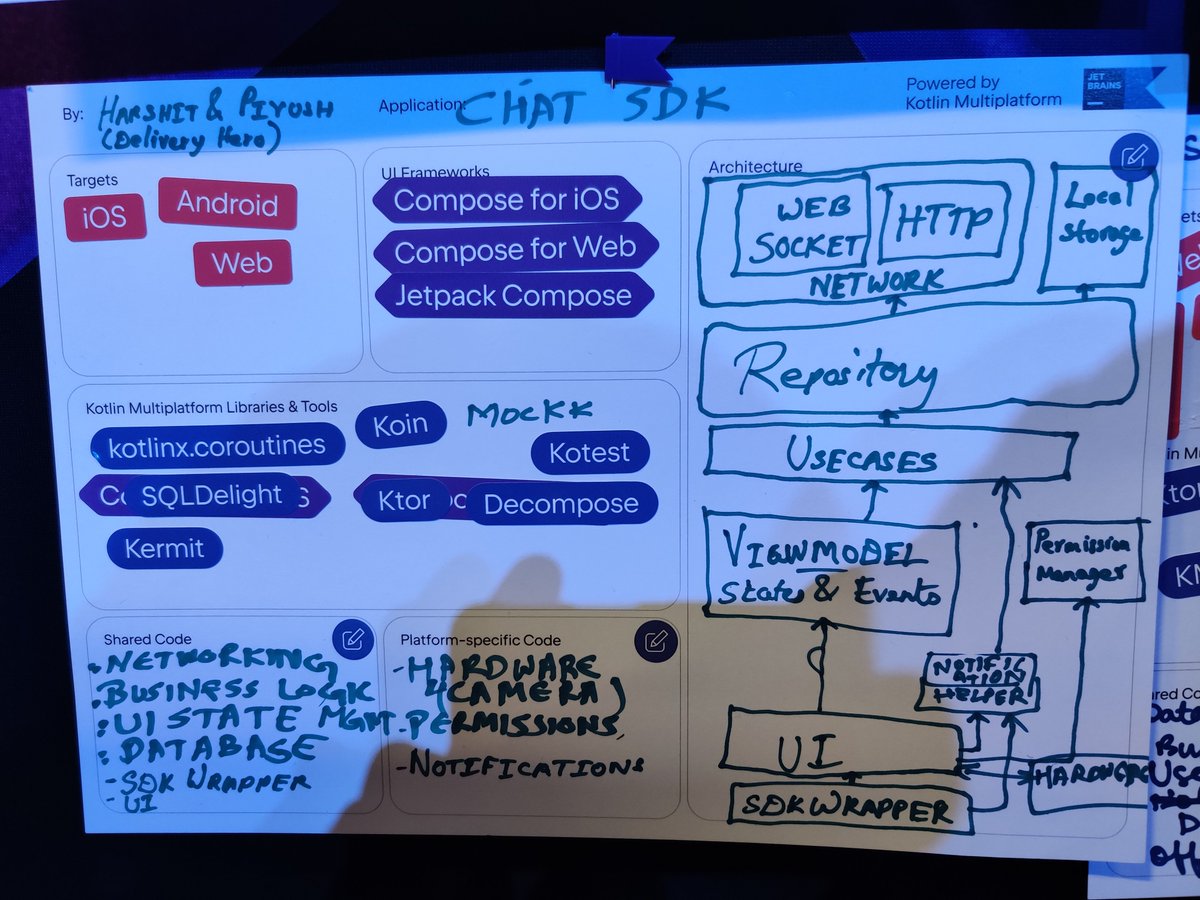 By: HARSHIT & PIYUSH
(Delivery Hero)
Application: CHAT SDK
Powered by
Kotlin Multiplatform
JET
BRAINS
Targets
iOS
Android
Web
UI Frameworks
Compose for iOS
Compose for Web
Jetpack Compose
Kotlin Multiplatform Libraries & Tools
kotlinx.coroutines
Koin
MOCKK
Kotest
SQLDelight
Ktor
Decompose
Kermit
Shared Code
• NETWORKING
• BUSINESS LOGIC
• UI STATE MGMT.
• DATABASE
- SDK WRAPPER
- UI
Platform-specific Code
- HARDWARE
(CAMERA)
- PERMISSIONS
- NOTIFICATIONS
Architecture
WEB
SOCKET
HTTP
NETWORK
Local
Storage
Repository
USECASES
VIEWMODEL
State & Events
Permission
Manager
NOTIFIC
ATION
HELPER
UI
HARDWARE
SDK WRAPPER